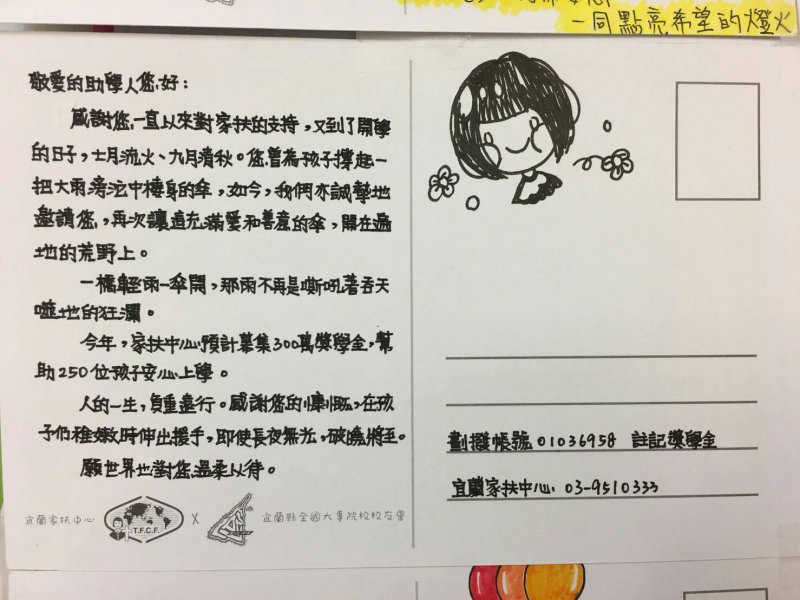 一同點亮希望的燈火
敬愛的助學人您好：
感謝您一直以來對家扶的支持，又到了開學
的日子，七月流火、九月清秋。您曾為孩子撐起一
把大雨滂沱中棲身的傘，如今，我們亦誠摯地
邀請您，再次讓這充滿愛和善意的傘，開在遍
地的荒野上。
一橋輕雨一傘開，那雨不再是嘶吼著吞天
噬地的狂瀾。
今年，家扶中心預計募集300萬獎學金，幫
助250位孩子安心上學。
人的一生，負重遠行。感謝您的慷慨，在孩
子仍稚嫩時伸出援手，即使長夜無光，破曉將至。
願世界也對您溫柔以待。
宜蘭家扶中心 T.F.C.F. X 宜蘭縣全國大專院校校友會
劃撥帳號 01036958 註記獎學金
宜蘭家扶中心 03-9510333